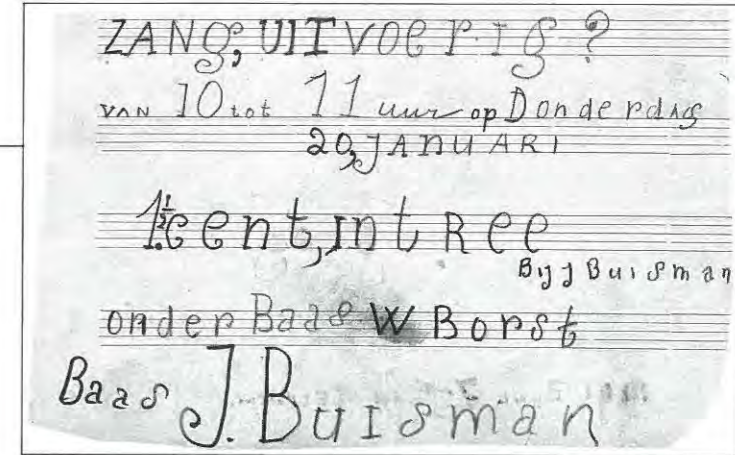 ZANg, UITVOERIg?
VAN 10 tot 11 uur op Donderdag
20, JANUARI
1½ cent, Intree
Bij J Buisman
onder Baas W Borst
Baas J. Buisman